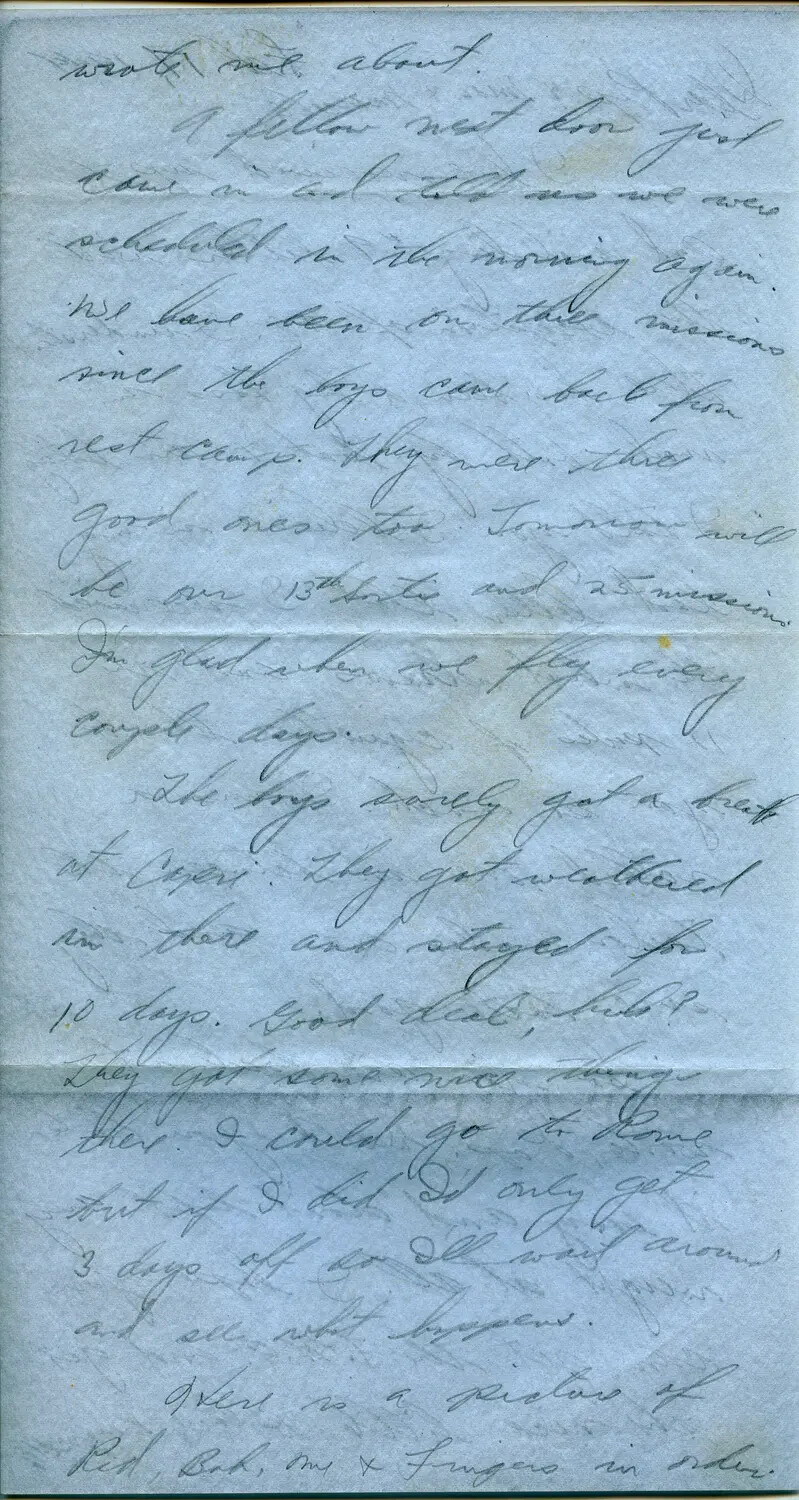 wrote me about.
A fellow next door just
came in and told us we were
scheduled in the morning again.
We have been on three missions
since the boys came back from
rest camp. They were three
good ones too. Tomorrow will
be our 13th sortie and 25 missions.
I'm glad when we fly every
couple days.
The boys surely got a break
at Capri. They got weathered
in there and stayed for
10 days. Good deal, huh?
They got some nice things
there. I could go to Rome
but if I did I'd only get
3 days off so I'll wait around
and see what happens.
Here is a picture of
Red, Bob, me & Fingers in order.